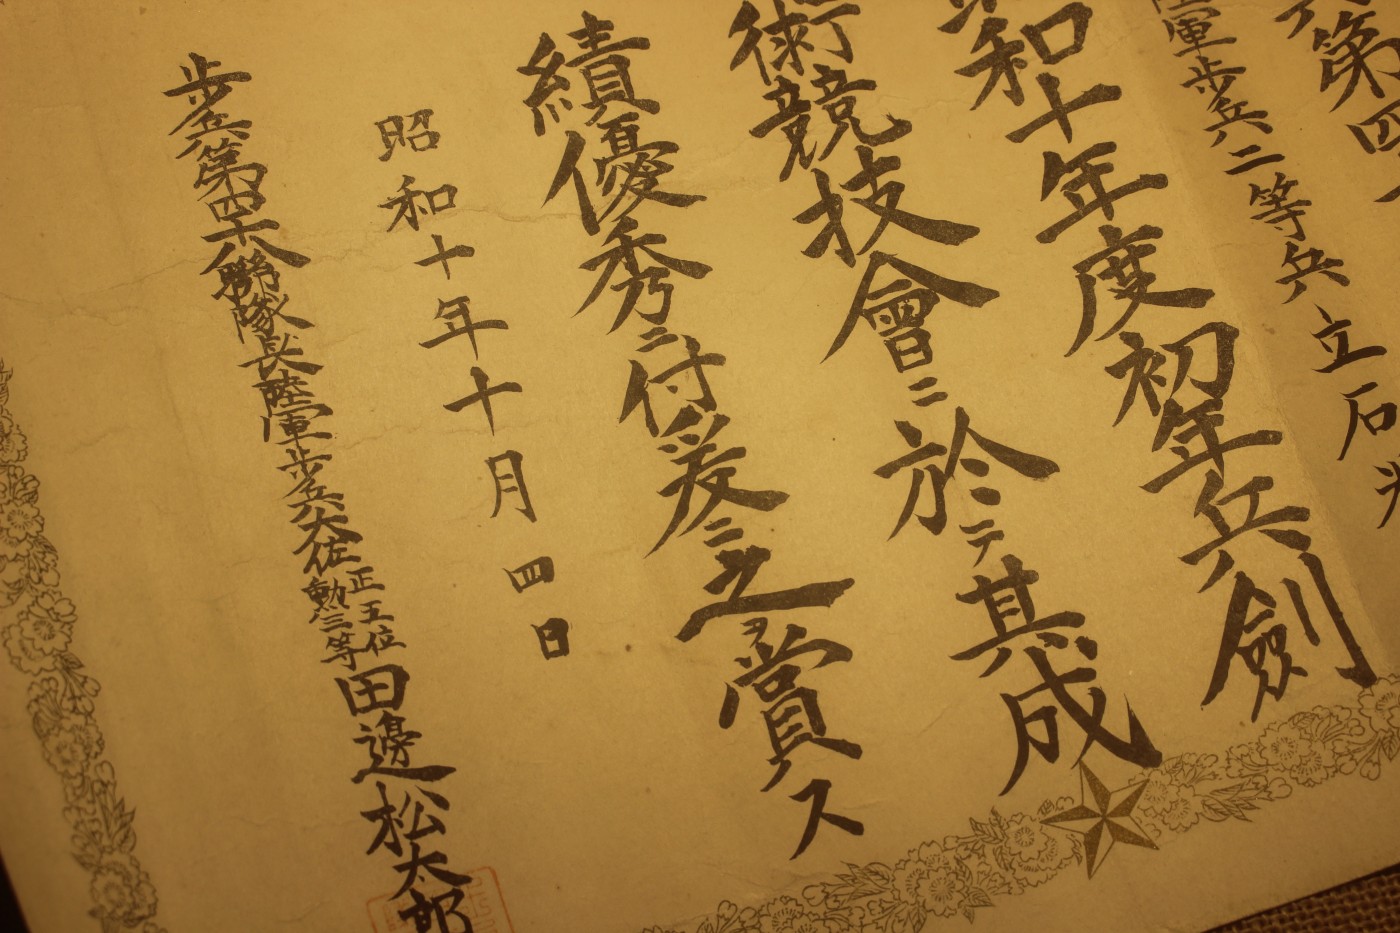 第四
陸軍歩兵二等兵立石
昭和十年度初年兵劍
術競技會ニ於テ其成
績優秀ニ付爰ニ之ヲ賞ス
昭和十年十月四日
歩兵第四十八聯隊長陸軍歩兵大佐正五位勲三等田邊松太郎